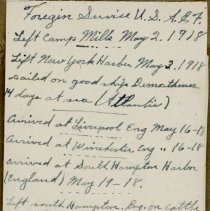 Foregin Service U.S. A.E.F.
Left Camp Mills May 2, 1918
Lift New York Harbor May 2, 1918
sailed on good ship Demosthenes
14 days at sea (Atlantic)
Arrived at Liverpool Eng May 16-18
Arrived at Winchester Eng .. 16-18
arrived at South Hampton Harbor
(England) May 19-18.
Left south Hampton, Eng. on cattle